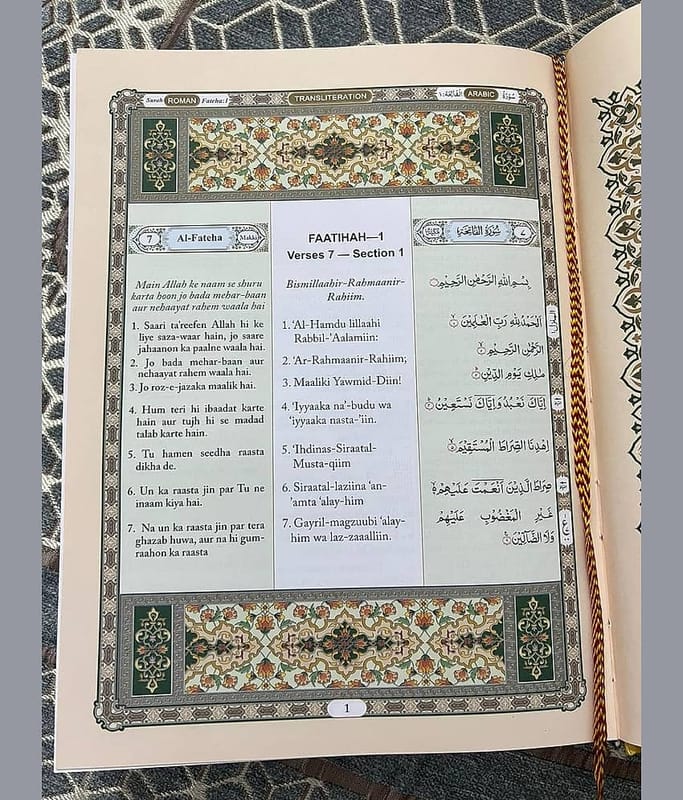 Surah ROMAN Fateha:1
TRANSLITERATION
الفاتحة:١ ARABIC سُورَة
7 Al-Fateha Makki
Main Allah ke naam se shuru
karta hoon jo bada mehar-baan
aur nehaayat rahem waala hai
1. Saari ta'reefen Allah hi ke
liye saza-waar hain, jo saare
jahaanon ka paalne waala hai.
2. Jo bada mehar-baan aur
nehaayat rahem waala hai.
3. Jo roz-e-jazaka maalik hai.
4. Hum teri hi ibaadat karte
hain aur tujh hi se madad
talab karte hain.
5. Tu hamen seedha raasta
dikha de.
6. Un ka raasta jin par Tu ne
inaam kiya hai.
7. Na un ka raasta jin par tera
ghazab huwa, aur na hi gum-
raahon ka raasta
FAATIHAH—1
Verses 7 — Section 1
Bismillaahir-Rahmaanir-
Rahiim.
1. ‘Al-Hamdu lillaahi
Rabbil-’Aalamiin:
2. ‘Ar-Rahmaanir-Rahiim;
3. Maaliki Yawmid-Diin!
4. ‘Iyyaaka na’-budu wa
‘iyyaaka nasta-’iin.
5. ‘Ihdinas-Siraatal-
Musta-qiim
6. Siraatal-laziina ‘an-
‘amta ‘alay-him
7. Gayril-magzuubi ‘alay-
him wa laz-zaaalliin.
سُوْرَةُ الْفَاتِحَةِ
بِسْمِ اللهِ الرَّحْمٰنِ الرَّحِيْمِ
اَلْحَمْدُ لِلّٰهِ رَبِّ الْعٰلَمِيْنَ
الرَّحْمٰنِ الرَّحِيْمِ
مٰلِكِ يَوْمِ الدِّيْنِ
اِيَّاكَ نَعْبُدُ وَاِيَّاكَ نَسْتَعِيْنُ
اِهْدِنَا الصِّرَاطَ الْمُسْتَقِيْمَ
صِرَاطَ الَّذِيْنَ اَنْعَمْتَ عَلَيْهِمْ
غَيْرِ الْمَغْضُوْبِ عَلَيْهِمْ
وَلَا الضَّآلِّيْنَ
1